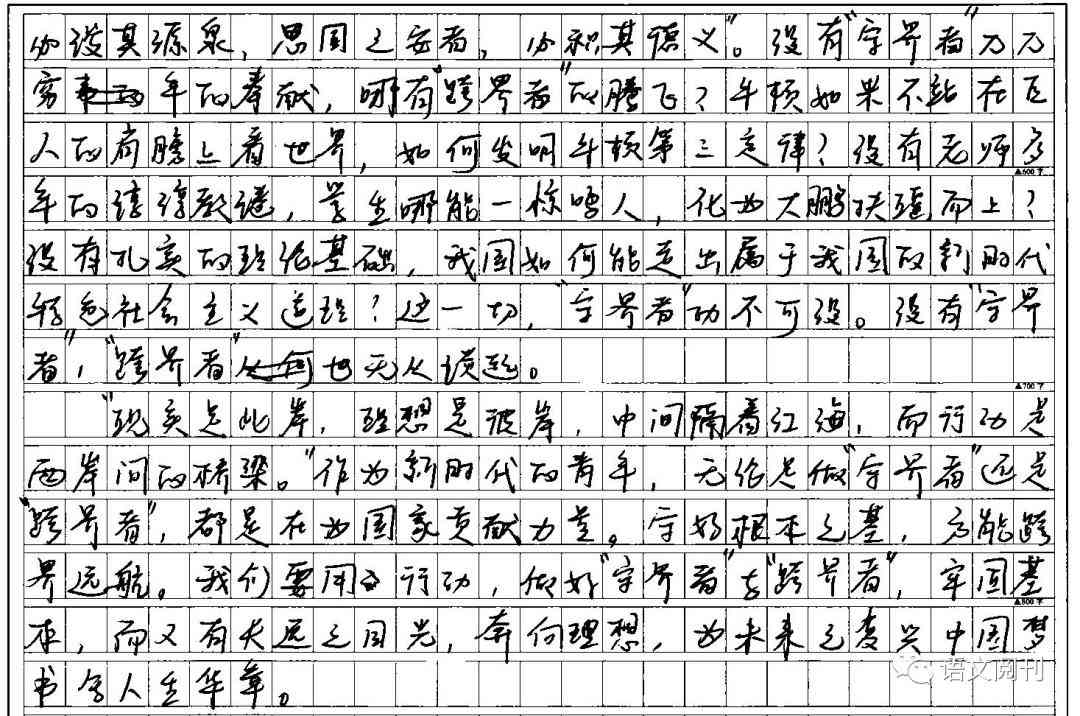 必浚其源泉，思国之安者，必积其德义”。没有“守界者”几万
穷年的奉献，哪有“跨界者”的腾飞？牛顿如果不站在巨
人的肩膀上看世界，如何发明牛顿第三定律？没有老师多
▲600字
年的谆谆教诲，学生哪能一惊鸣人，化为大鹏扶疆而上？
没有扎实的理论基础，我国如何能走出属于我国的新时代
特色社会主义道理？这一切，“守界者”功不可没。没有“守界
者”，“跨界者”也无从谈起。
▲700字
“现实是此岸，理想是彼岸，中间隔着红海，而行动是
两岸间的桥梁。”作为新时代的青年，无论是做“守界者”还是
“跨界者”，都是在为国家贡献力量。守好根本之基，方能跨
界远航。我们要用行动，做好“守界者”与“跨界者”，牢固基
▲800字
本，而又有长远之目光，奔向理想，为未来之复兴中国梦
书写人生华章。
语文阅刊